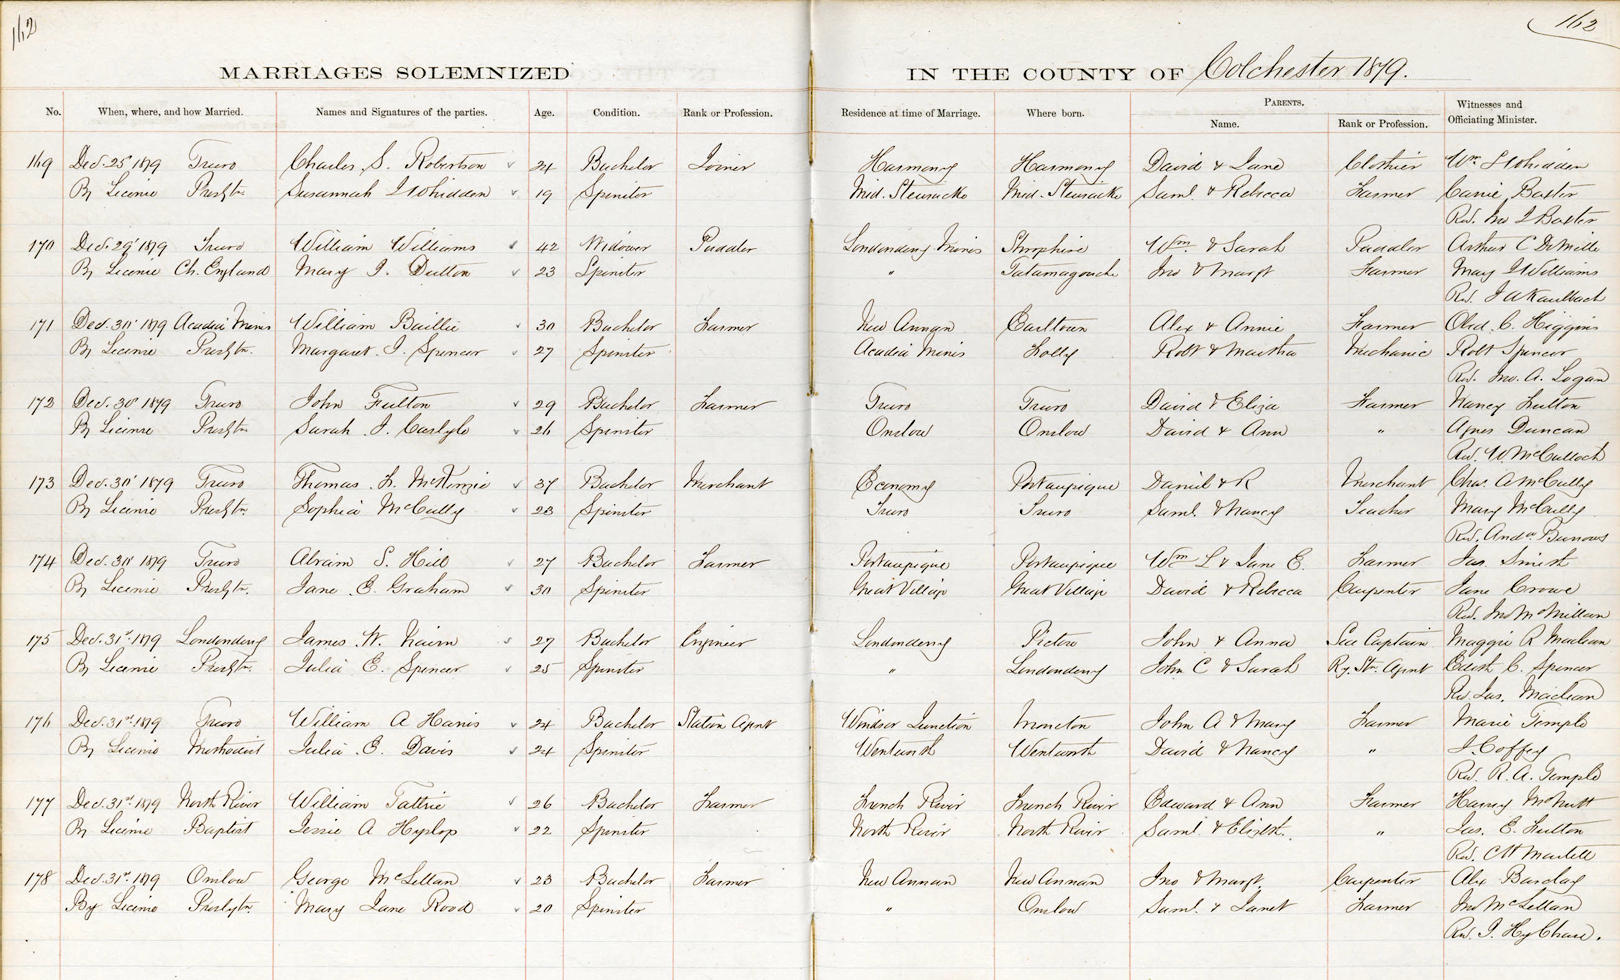 162
162
MARRIAGES SOLEMNIZED IN THE COUNTY OF Colchester 1879.
No. When, where, and how Married. Names and Signatures of the parties. Age. Condition. Rank or Profession. Residence at time of Marriage. Where born. PARENTS. Name. Rank or Profession. Witnesses and Officiating Minister.
169 Dec. 25" 1879 Truro Charles S. Robertson 24 Bachelor Joiner Harmony Harmony David & Jane Clothier Wm
By License Presbtn. Susannah Whidden 19 Spinster Mid. Stewiacke Mid. Stewiacke Saml. & Rebecca Farmer Carrie Baxter
Rev. Jno I Baxter
170 Dec. 29" 1879 Truro William Williams 42 Widower Puddler Londonderry Mines Shropshire Wm & Sarah Puddler Arthur C DeMille
By License Ch. England Mary J. Dutton 23 Spinster " Tatamagouche Jno & Margt Farmer Mary Williams
Rev. J A Kaulbach
171 Dec. 30" 1879 Acadia Mines William Baillie 30 Bachelor Farmer New Annan Earltown Alex & Annie Farmer C. Higgins
By License Presbtn. Margaret J. Spencer 27 Spinster Acadia Mines Folly Robt & Martha Mechanic Robt Spencer
Rev. Jno. A. Logan
172 Dec. 30" 1879 Truro John Fulton 29 Bachelor Farmer Truro Truro David & Eliza Farmer Nancy Fulton
By License Presbtn. Sarah J. Carlyle 26 Spinster Onslow Onslow David & Ann " Agnes Duncan
Rev. W McCulloch
173 Dec. 30" 1879 Truro Thomas F. McKenzie 37 Bachelor Merchant Economy Portaupique Daniel & R Merchant Chas. A McCully
By License Presbtn. Sophia McCully 23 Spinster Truro Truro Saml. & Nancy Teacher Mary McCully
Rev. Andw Burrows
174 Dec. 30" 1879 Truro Abram S. Hill 27 Bachelor Farmer Portaupique Portaupique Wm L & Jane E. Farmer Jas.
By License Presbtn. Jane E. Graham 30 Spinster Great Village Great Village David & Rebecca Carpenter Jane Crowe
Rev. Jno McMillan
175 Dec. 31st. 1879 Londonderry James W. Nairn 27 Bachelor Engineer Londonderry Pictou John & Anna Sea Captain Maggie R Maclean
By License Presbtn. Julia E. Spencer 25 Spinster " Londonderry John C & Sarah Ry. Stn. Agent Edith C. Spencer
Rev Jas. Maclean
176 Dec. 31st. 1879 Truro William A Harris 24 Bachelor Station Agent Windsor Junction Moncton John A & Mary Farmer Marie Temple
By License Methodist Julia E. Davis 24 Spinster Wentworth Wentworth David & Nancy " J. Coffey
Rev. R. A. Temple
177 Dec. 31st. 1879 North River William Tattrie 26 Bachelor Farmer French River French River Edward & Ann Farmer Harvey McNutt
By License Baptist Jessie A Hyslop 22 Spinster North River North River Saml & Elizbth. " Jas. E. Fulton
Rev. C H Martell
178 Dec. 31st. 1879 Onslow George McLellan 23 Bachelor Farmer New Annan New Annan Jno & Margt. Carpenter Alex Barclay
By License Presbytn. Mary Jane Rood 20 Spinster " Onslow Saml. & Janet Farmer Jno McLellan
Rev. J. Hy Chase.